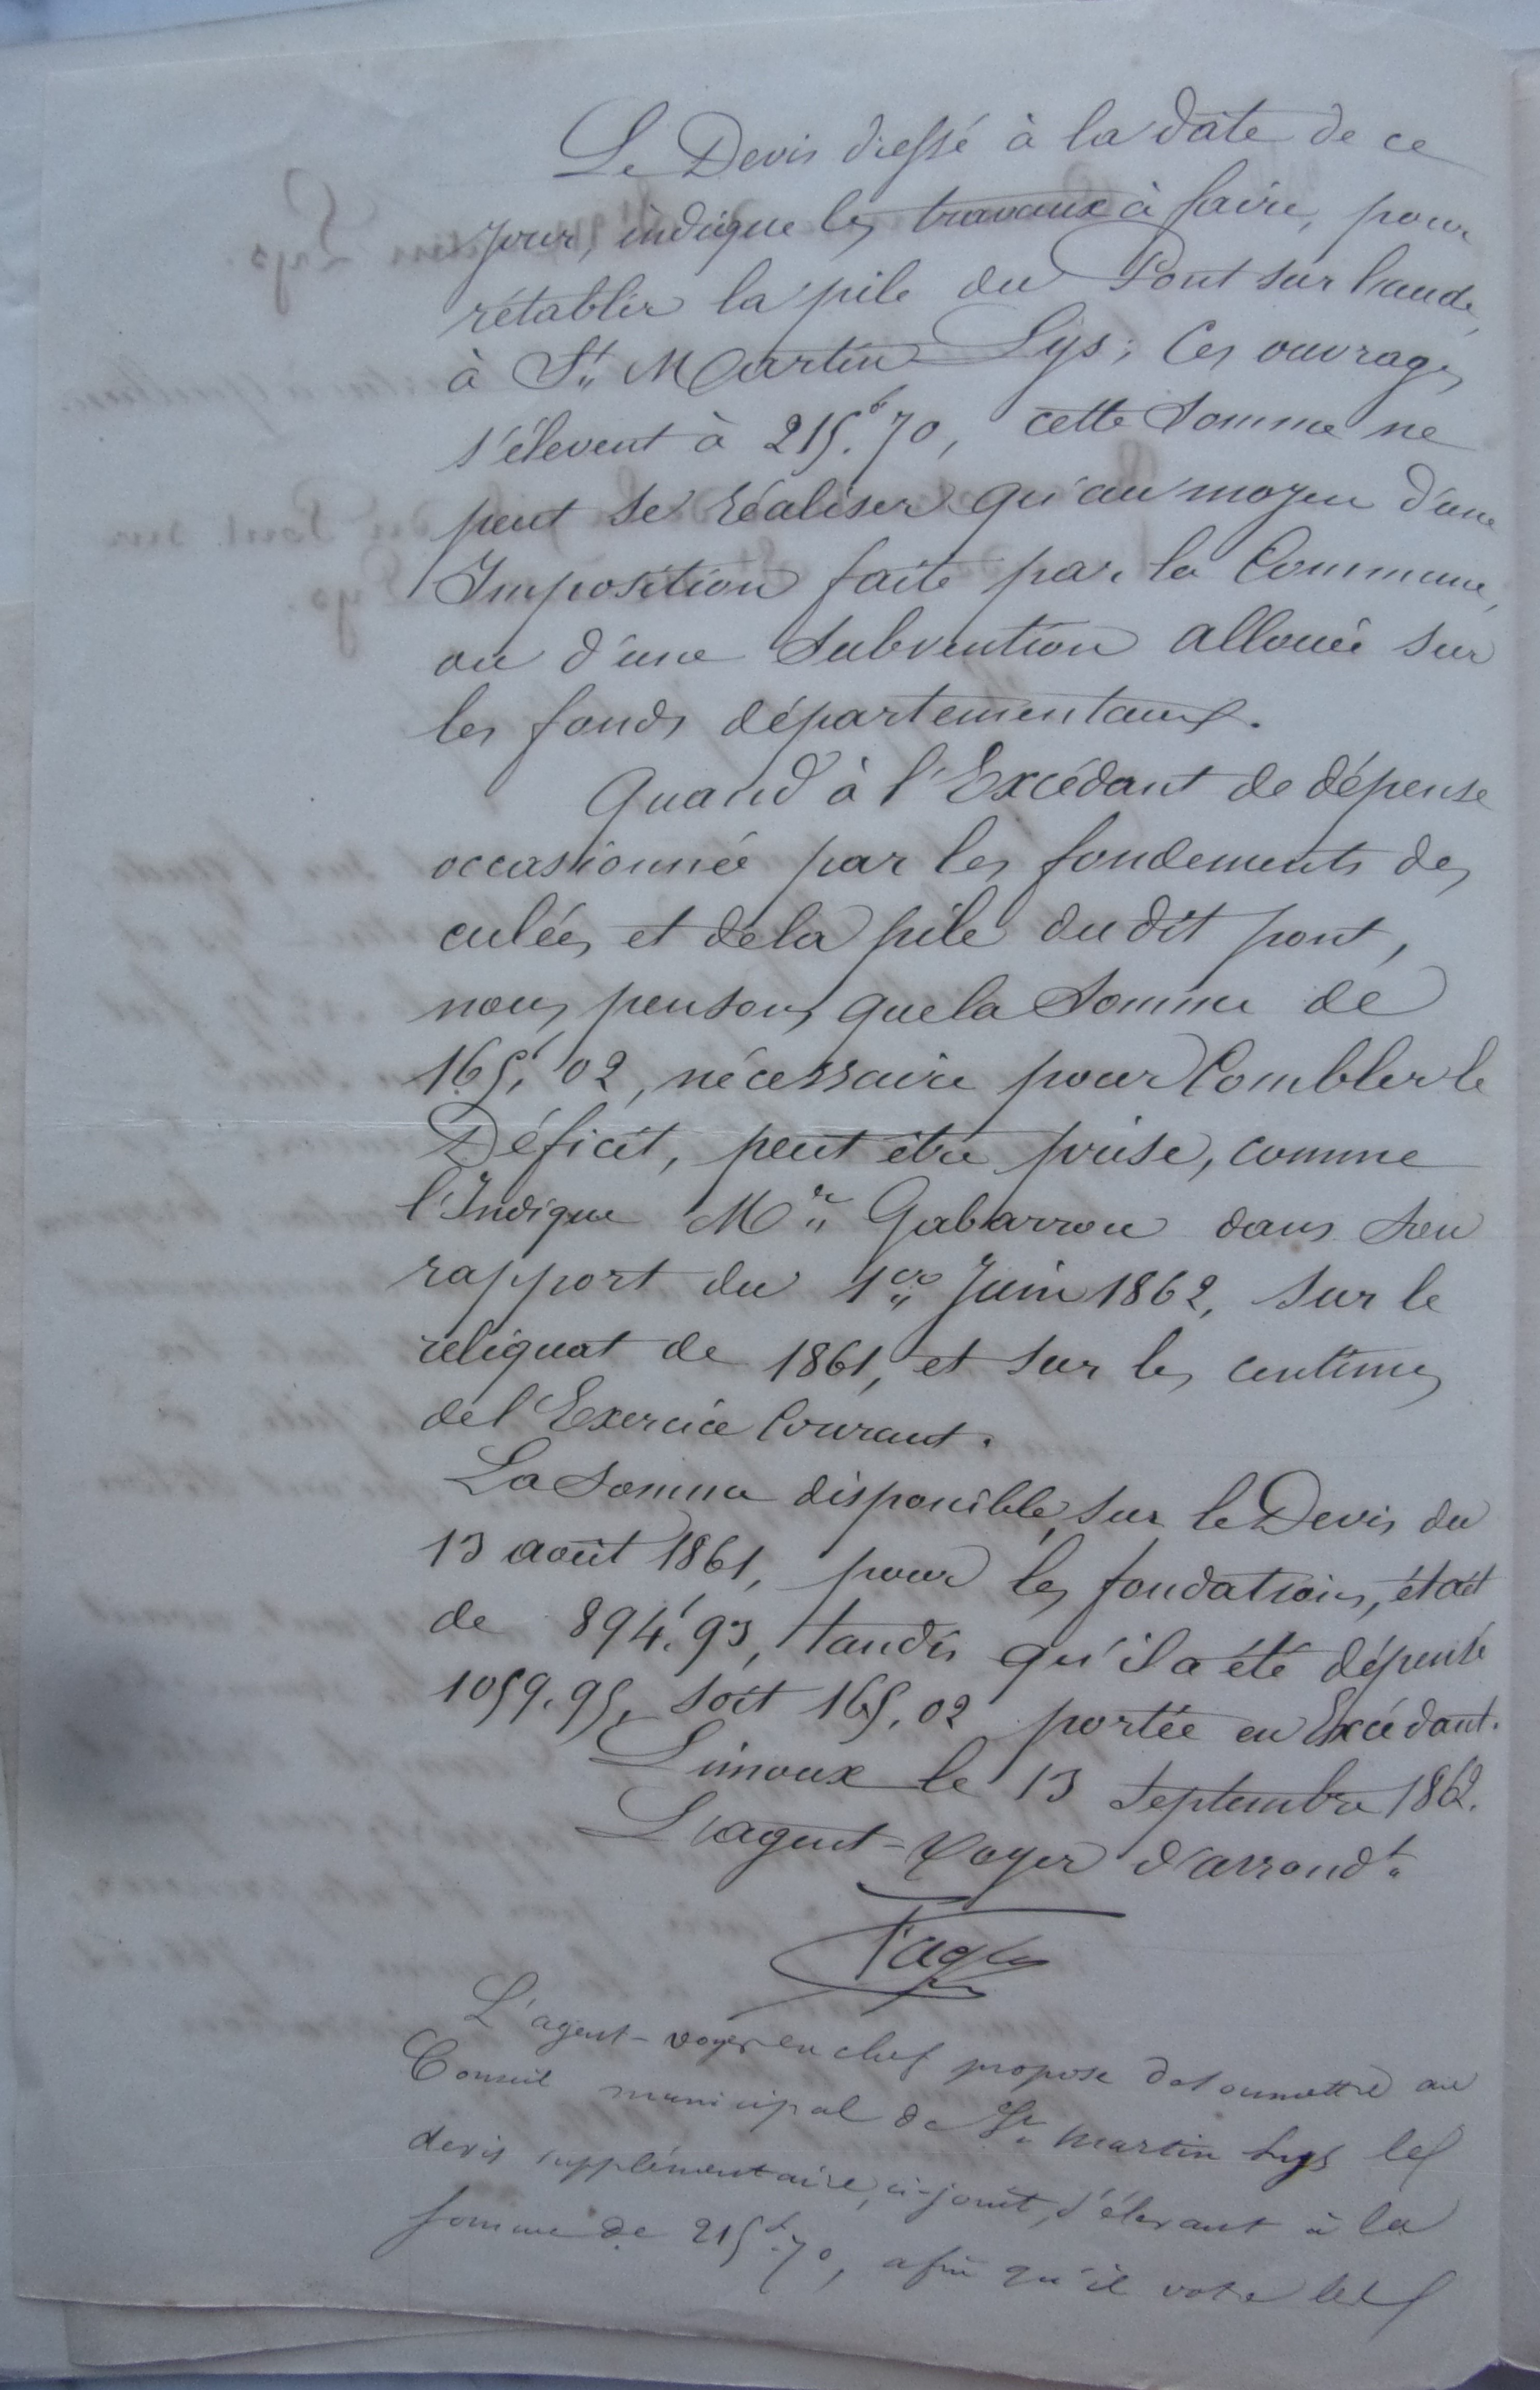 Le Devis dressé à la date de ce
jour, indique les travaux à faire, pour
rétablir la pile du Pont sur l'aude,
à St. Martin Lys; Ces ouvrages
s'élevent à 215.f 70, cette somme ne
peut se réaliser qu'au moyen d'une
Imposition faite par la Commune,
ou d'une subvention allouée sur
les fonds départementaux.
Quand à l'Excédant de dépense
occasionnée par les fondements des
culées et de la pile du dit pont,
nous pensons que la somme de
165.f 02, nécessaire pour Combler le
Déficit, peut être prise, comme
l'Indique Mr. Gabarrou dans son
rapport du 1er Juin 1862, sur le
reliquat de 1861, et sur les centimes
de l'Exercice Courant.
La somme disponible, sur le Devis du
13 août 1861, pour les fondations, était
de 894.f 93, tandis qu'il a été dépensé
1059.95, soit 165.02 portée en Excédant.
Limoux le 13 Septembre 1862.
L'agent-Voyer d'arrondt.
L'agent-voyer en chef propose de soumettre au
Conseil municipal de St. Martin Lys le
devis supplémentaire, ci-joint, s'élevant à la
somme de 215.f 70, afin qu'il vote le